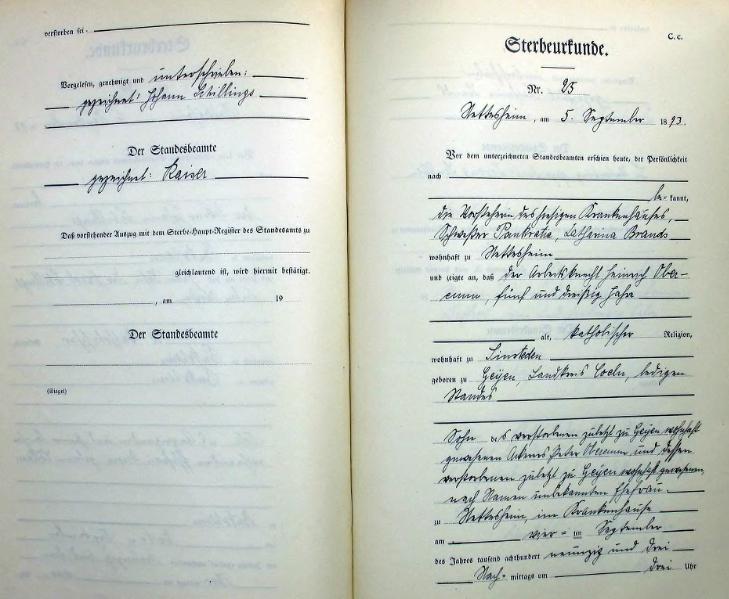 verstorben sei
Vorgelesen, genehmigt und unterschrieben:
gezeichnet: Johann Schillings
Der Standesbeamte
gezeichnet: Kaiser
Daß vorstehender Auszug mit dem Sterbe-Haupt-Register des Standesamts zu
gleichlautend ist, wird hiermit bestätigt.
, am 19
Der Standesbeamte
(Siegel)
C. c.
Sterbeurkunde.
Nr. 25
Nettesheim, am 5. September 1893.
Vor dem unterzeichneten Standesbeamten erschien heute, der Persönlichkeit
nach
be- kannt,
die Vorsteherin des hiesigen Krankenhauses,
Schwester Pankratia, Catharina Brands
wohnhaft zu Nettesheim
und zeigte an, daß der Ackerknecht Heinrich Ober-
fünf und dreißig Jahre
alt, katholischer Religion,
wohnhaft zu Sinsteden
geboren zu Geyen, Landkreis Coeln, ledigen
Standes
Sohn des verstorbenen zuletzt zu Geyen wohnhaft
gewesenen Ackerers Peter und dessen
verstorbenen zuletzt zu Geyen wohnhaft gewesenen
nach Namen unbekannten Ehefrau.
zu Nettesheim, im Krankenhause
am vier- ten September
des Jahres tausend achthundert neunzig und drei
Nach- mittags um drei Uhr